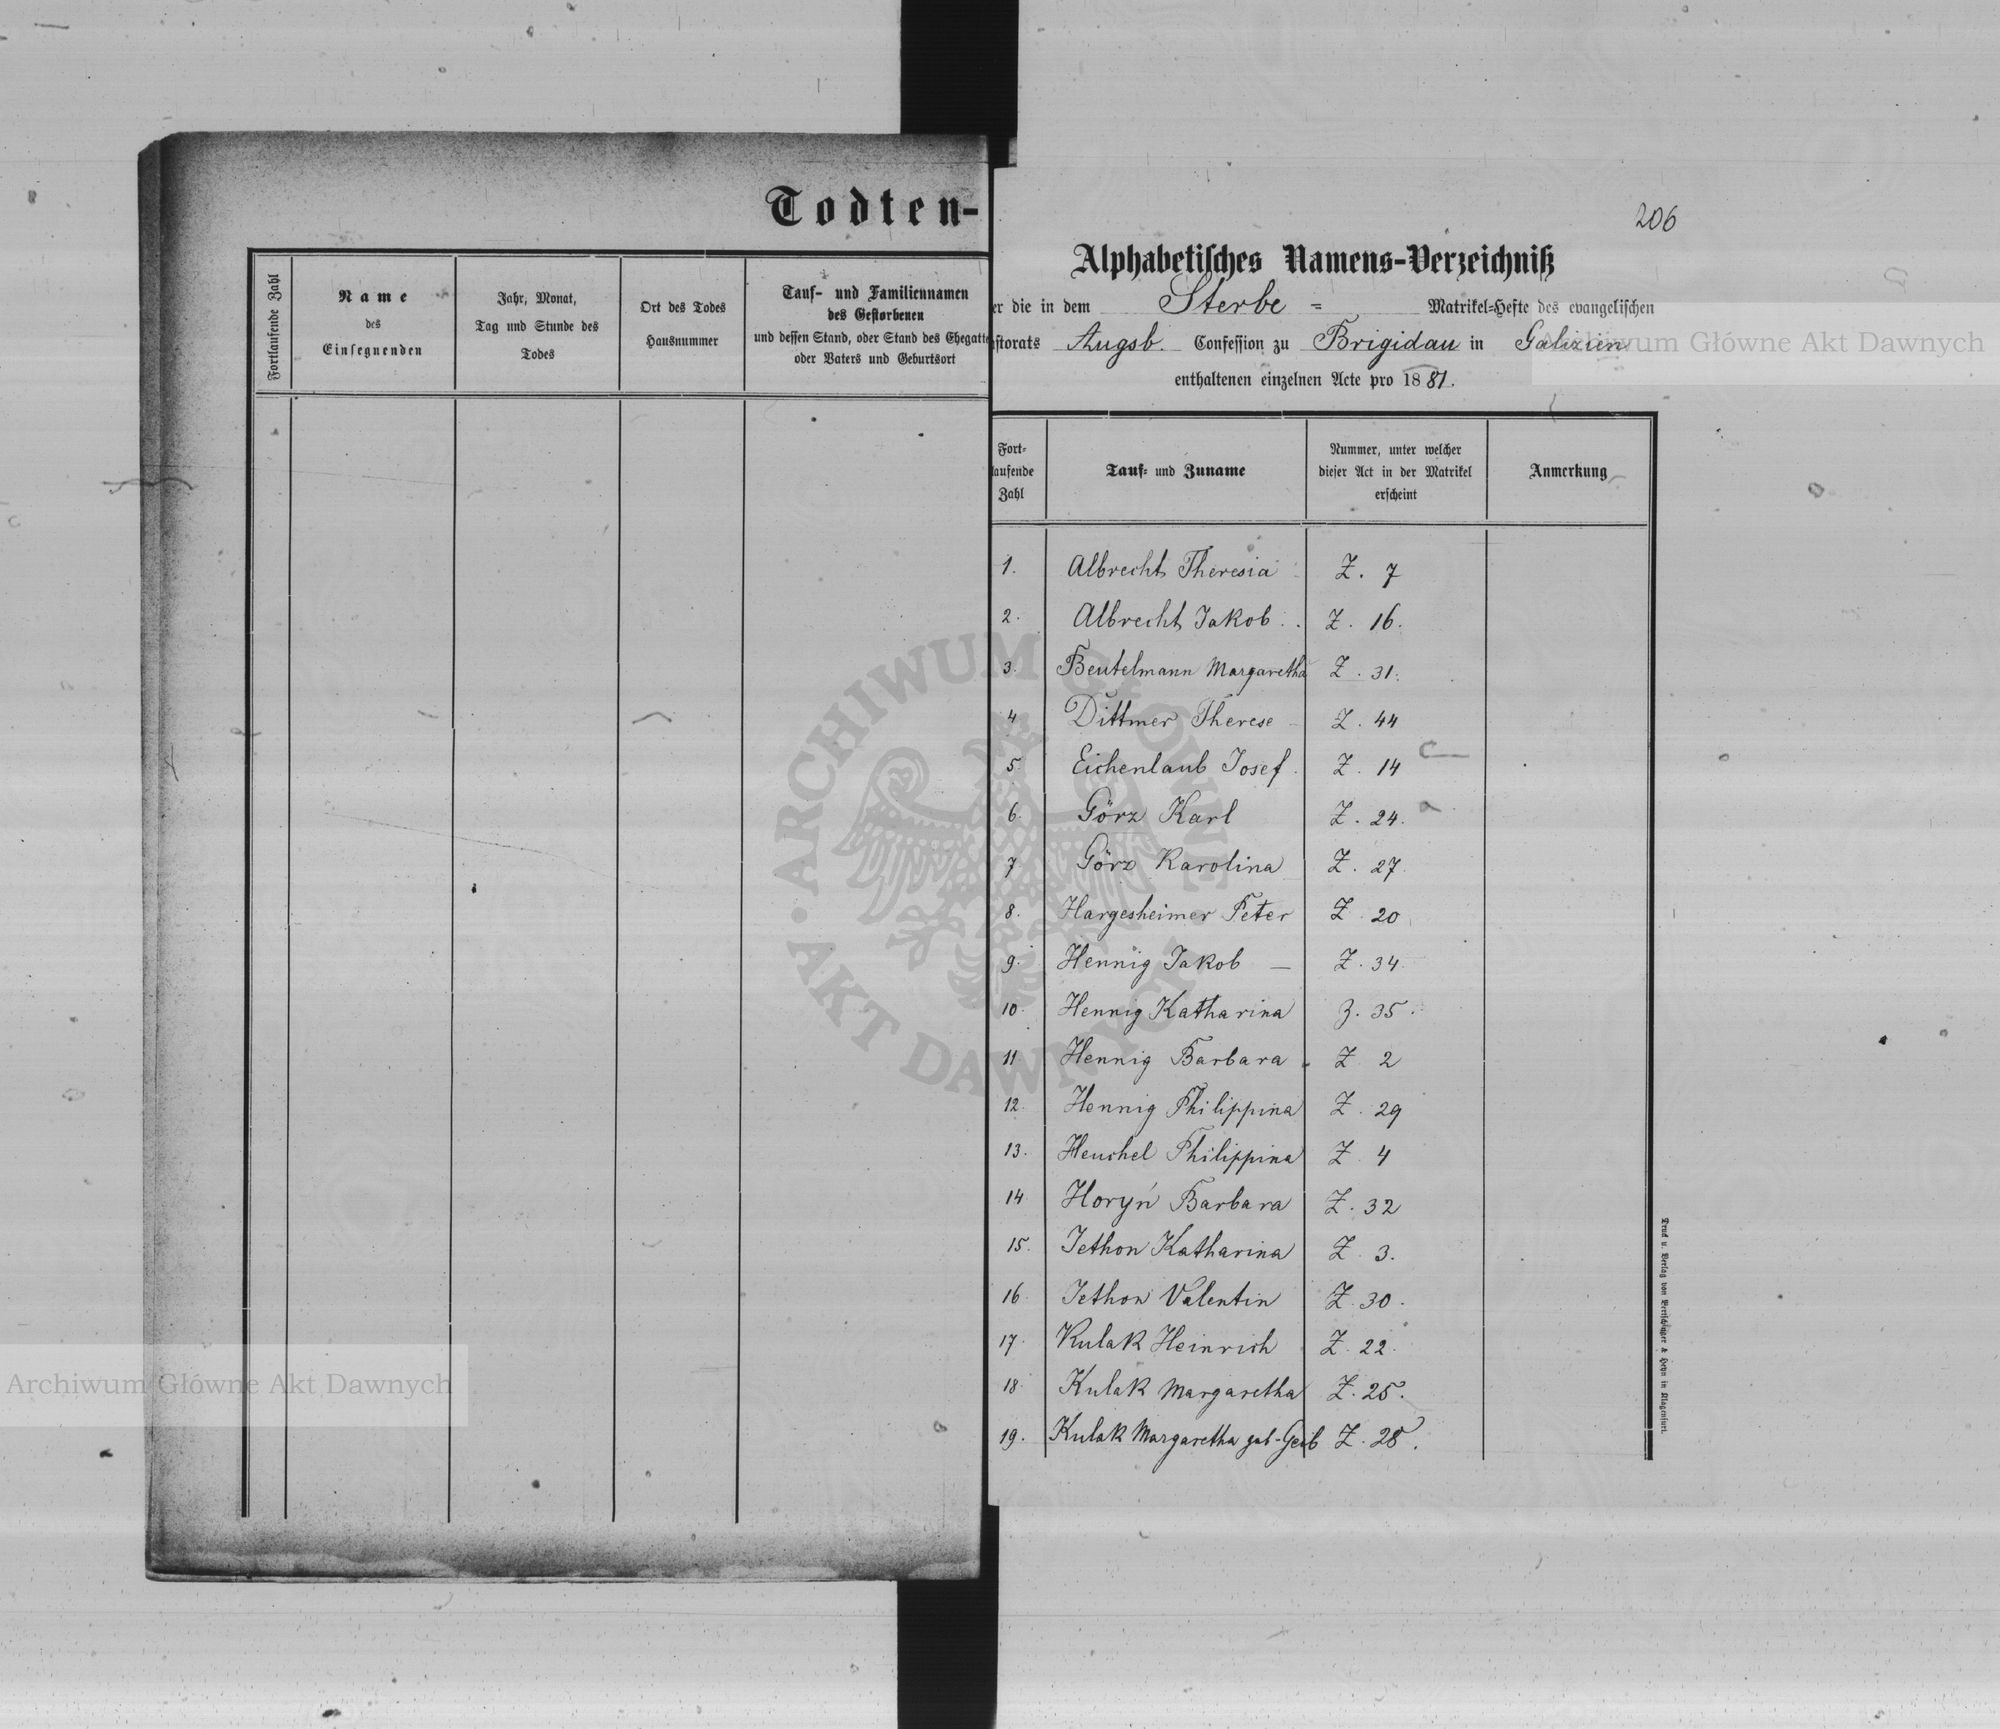 Todten-
Fortlaufende Zahl
Name
des
Einsegnenden
Jahr, Monat,
Tag und Stunde des
Todes
Ort des Todes
Hausnummer
Tauf- und Familiennamen
des Gestorbenen
und dessen Stand, oder Stand des Ehegatte
oder Vaters und Geburtsort
206
Alphabetisches Namens-Verzeichniß
er die in dem Sterbe = Matrikel-Hefte des evangelischen
storats Augsb. Confession zu Brigidau in Galizien
enthaltenen einzelnen Acte pro 1881.
Fort-
laufende
Zahl
Tauf- und Zuname
Nummer, unter welcher
dieser Act in der Matrikel
erscheint
Anmerkung
1. Albrecht Theresia Z. 7
2. Albrecht Jakob. Z. 16.
3. Beutelmann Margaretha Z. 31.
4 Dittmer Therese Z. 44
5 Eichenlaub Josef. Z. 14
6. Görz Karl Z. 24.
7 Görz Karolina Z. 27.
8. Hargesheimer Peter Z 20
9. Hennig Jakob — Z. 34.
10. Hennig Katharina Z. 35.
11 Hennig Barbara Z 2
12. Hennig Philippina Z. 29
13. Heuchel Philippina Z. 4
14 Horyń Barbara Z. 32
15. Jethon Katharina Z. 3.
16. Jethon Valentin Z. 30.
17. Kulak Heinrich Z. 22.
18. Kulak Margaretha Z. 25.
19. Kulak Margaretha geb. Geib Z. 28.
Druck u. Verlag von Bertschinger & Heyn in Klagenfurt.
Archiwum Główne Akt Dawnych
Archiwum Główne Akt Dawnych
ARCHIWUM GŁÓWNE • AKT DAWNYCH